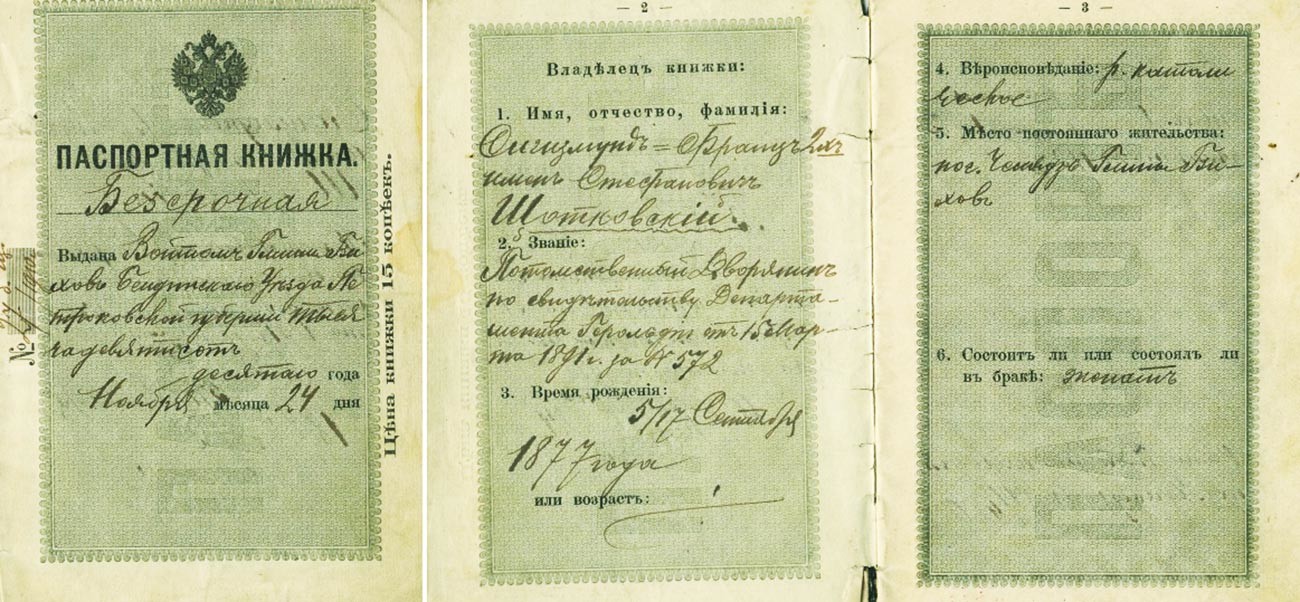 ПАСПОРТНАЯ КНИЖКА.
Безсрочная
Выдана Войтомъ Гмины Бо-
ховъ Бендинскаго Уѣзда Пе-
троковской губерніи тысяча
девятисотъ
десятаго года
Ноября мѣсяца 24 дня
№
Цѣна книжки 15 копѣекъ.
— 2 —
Владѣлецъ книжки:
1. Имя, отчество, фамилія:
Сигизмундъ=Францъ 2хъ
именъ Стефановичъ
Шотковскій.
2. Званіе:
Потомственный Дворянинъ
по свидѣтельству Департа-
мента Герольдіи отъ 15 Мар-
та 1891 г. за № 572
3. Время рожденія:
5/17 Сентября
1877 года
или возрастъ:
— 3 —
4. Вѣроисповѣданіе: р. католи
ческое
5. Мѣсто постояннаго жительства:
пос. Гмина
6. Состоитъ ли или состоялъ ли
въ бракѣ: женатъ